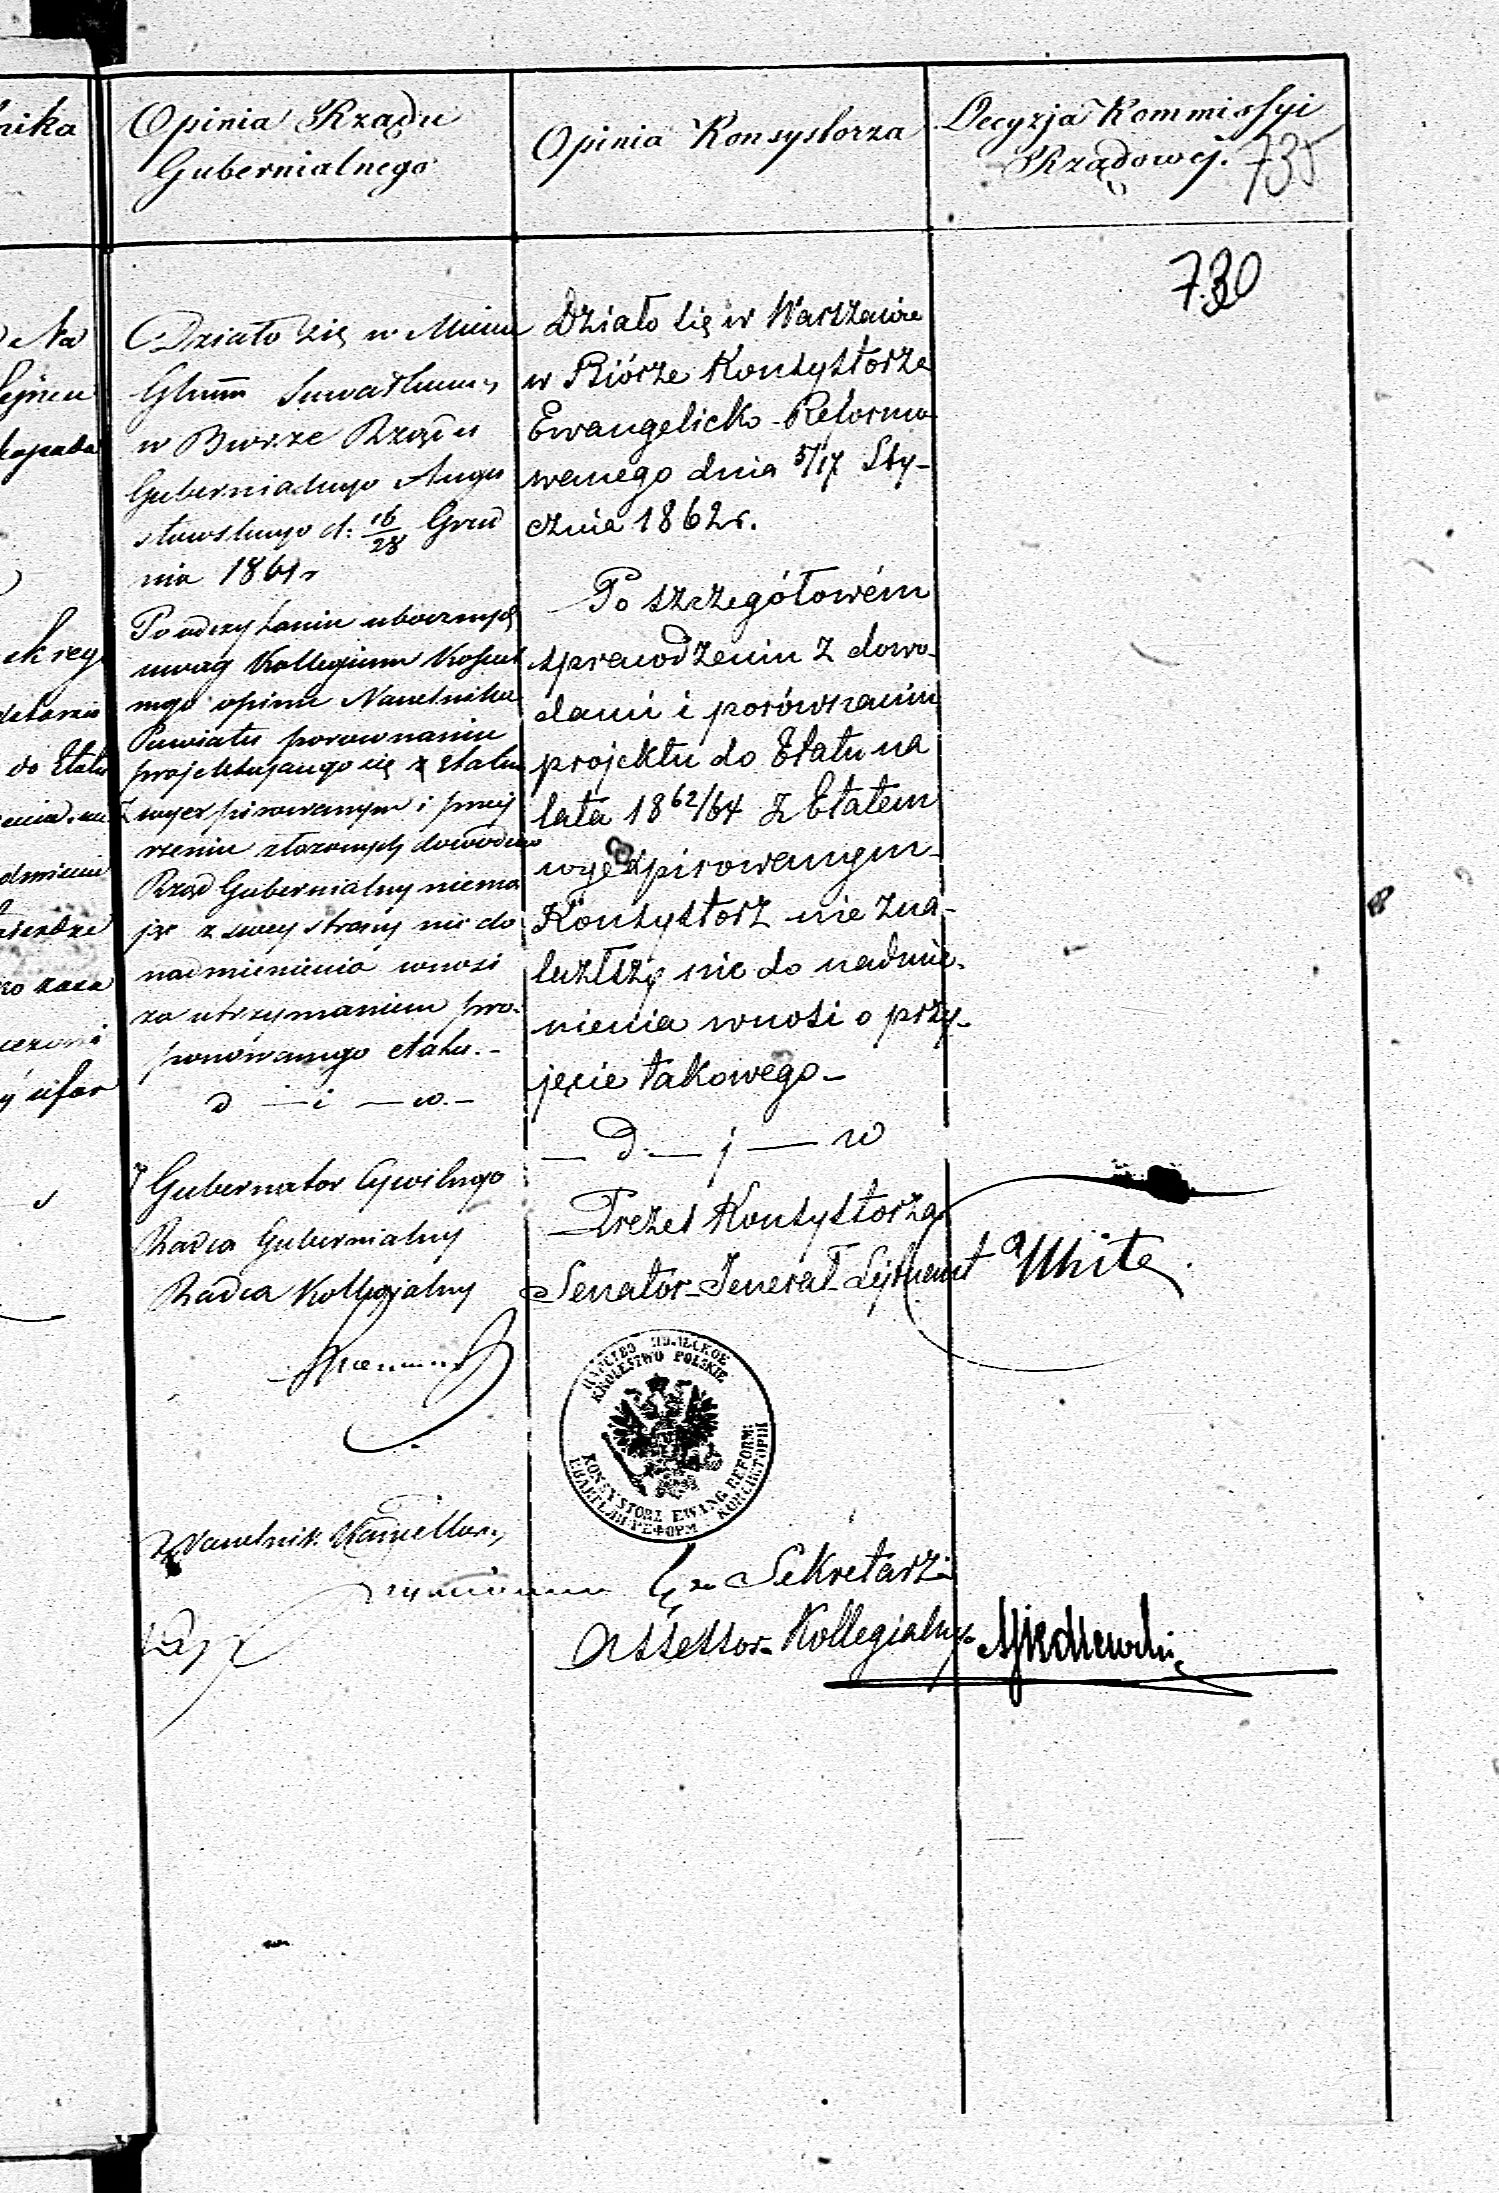 nika
Na
Sejneń
ekregu
do Etatu
Opinia Rządu
Gubernialnego
Działo się w Mieście
Gbnm Suwałkach
w Biurze Rządu
Gubernialnego Augu
stowskiego d. 16/28 Grud
nia 1861 r
Po odczytaniu ubocznych
uwag Kollegium Kościel
nego opinii Naczelnika
Powiatu porównaniu
projektującego się z etatu
wyexpirowanym i przej
rzeniu złożonych dowodów
Rząd Gubernialny niema
jąc z swej strony nic do
nadmienienia wnosi
za utrzymaniem pro-
ponowanego etatu.-
d — i — w.-
Gubernator Cywilnego
Radca Gubernialny
Radca Kollegialny
z Naczelnik Kancellaryi
Opinia Konsystorza
Działo się w Warszawie
w Biórze Konsystorza
Ewangelicko-Reformo-
wanego dnia 5/17 Sty-
cznia 1862 r.
Po szczegółowém
sprawdzeniu z dowo-
dami i porównaniu
projektu do Etatu na
lata 1862/64 z Etatem
wyexpirowanym-
Konsystorz nie zna-
lazłszy nic do nadmie-
nienia wnosi o przy-
jęcie takowego-
— D. — j — w
Prezes Konsystorza
Senator-Jenerał-Lejtnant White
ЦАРСТВО ПОЛЬСКОЕ
KRÓLESTWO POLSKIE
KONSYSTORZ EWANG REFORM:
ЕВАНГЕЛ: РЕФОРМ: КОНСИСТОРІЯ
za Sekretarza
Assessor Kollegialny
Decyzja Kommissyi
Rządowej.
735
730